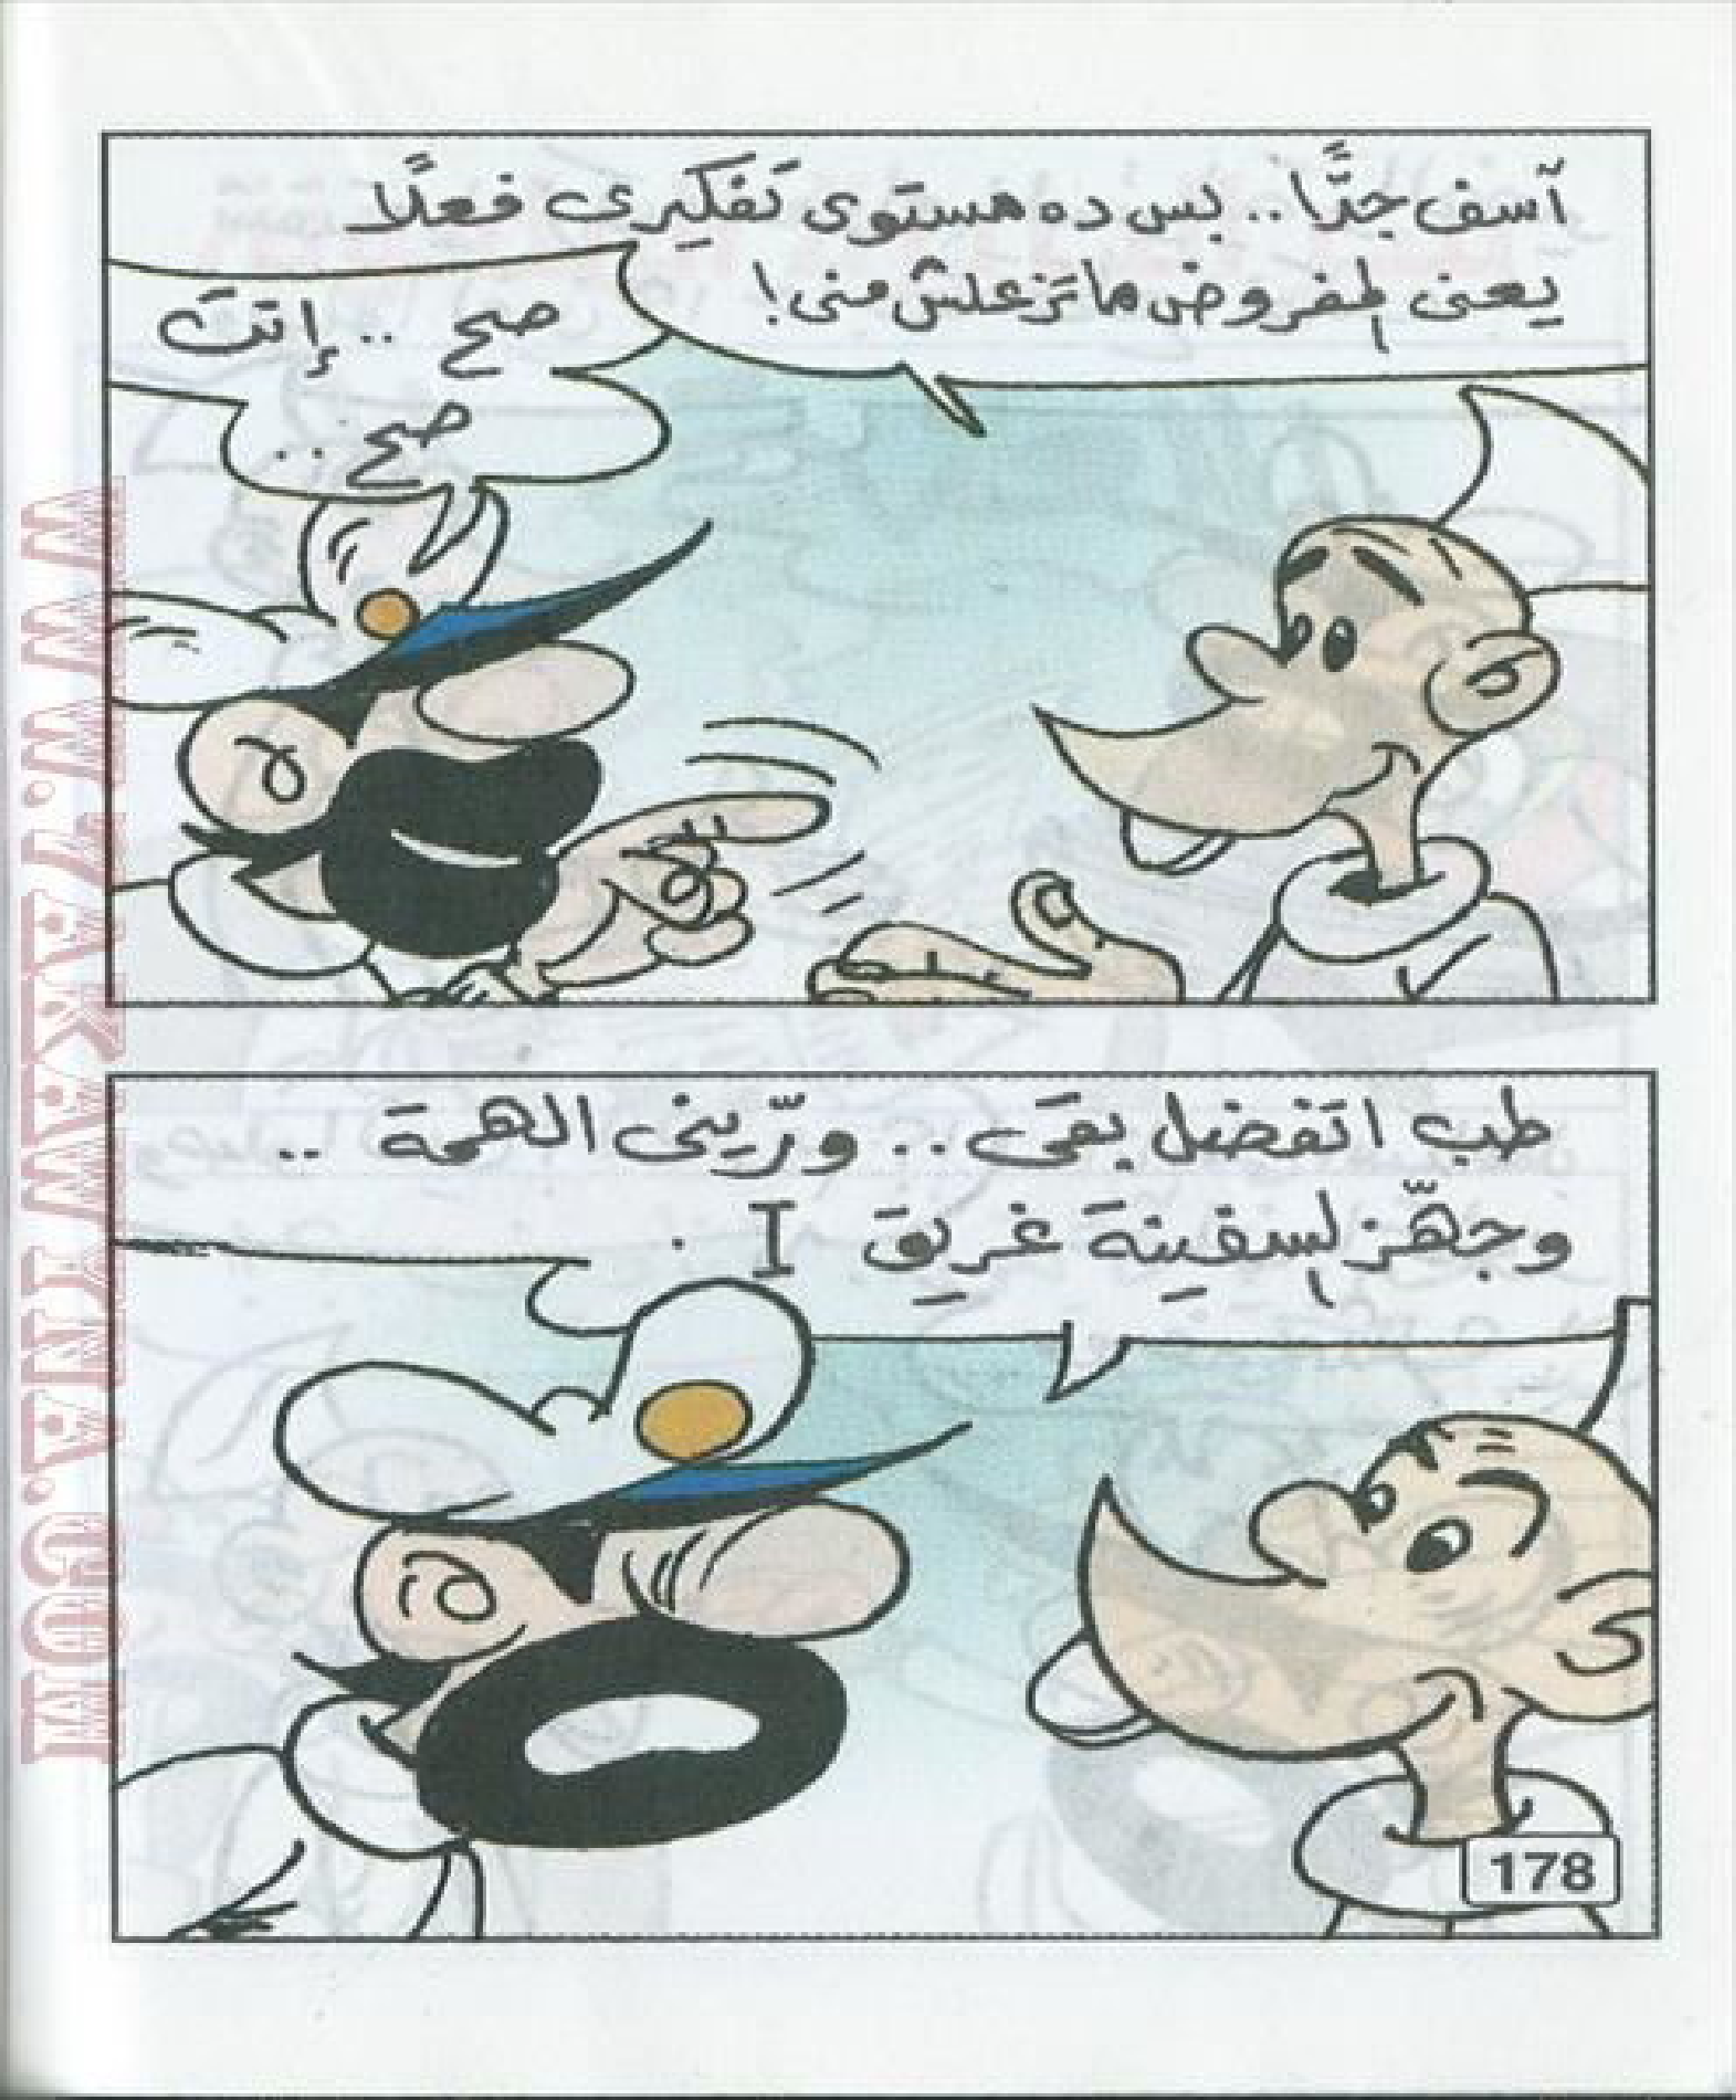 آسف جدًّا.. بس ده مستوى تفكِيرى فعلًا
يعنى المفروض ماتَزعلش منى!
صح .. إنتَ
صح ..
طب اتفضل بقَى .. ورّينى الهمة ..
وجهّز لسفينة غريق I .
178
WWW.7AKAWITNA.COM